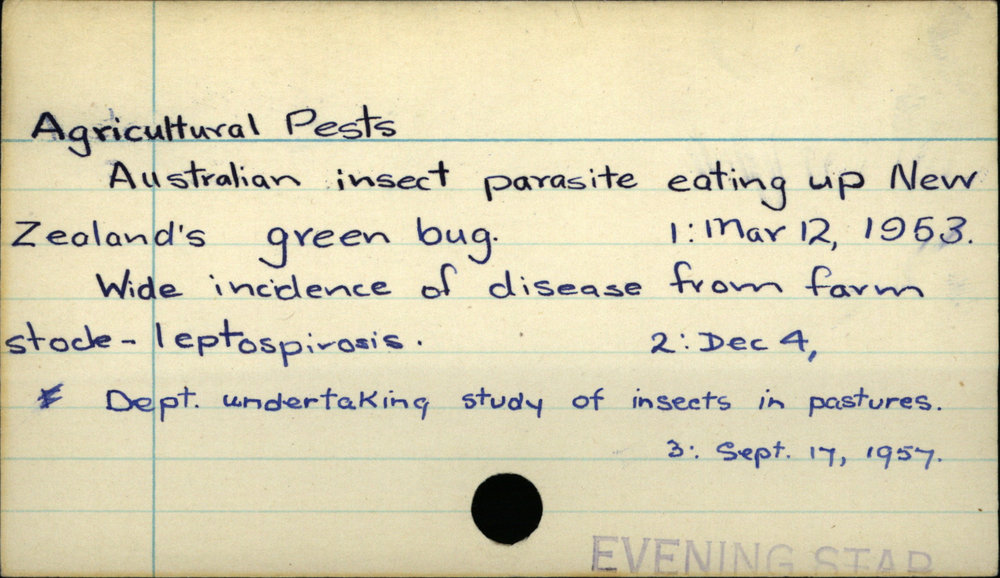 Agricultural Pests
Australian insect parasite eating up New
Zealand's green bug. 1: Mar 12, 1953.
Wide incidence of disease from farm
stock - leptospirosis. 2: Dec 4,
Dept. undertaking study of insects in pastures.
3: Sept. 17, 1957.
EVENING STAR